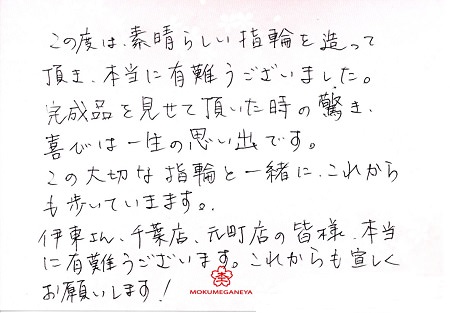 この度は、素晴らしい指輪を造って
頂き、本当に有難うございました。
完成品を見せて頂いた時の驚き、
喜びは一生の思い出です。
この大切な指輪と一緒に、これから
も歩いていきます。
伊東さん、千葉店、元町店の皆様、本当
に有難うございます。これからも宜しく
お願いします!
MOKUMEGANEYA